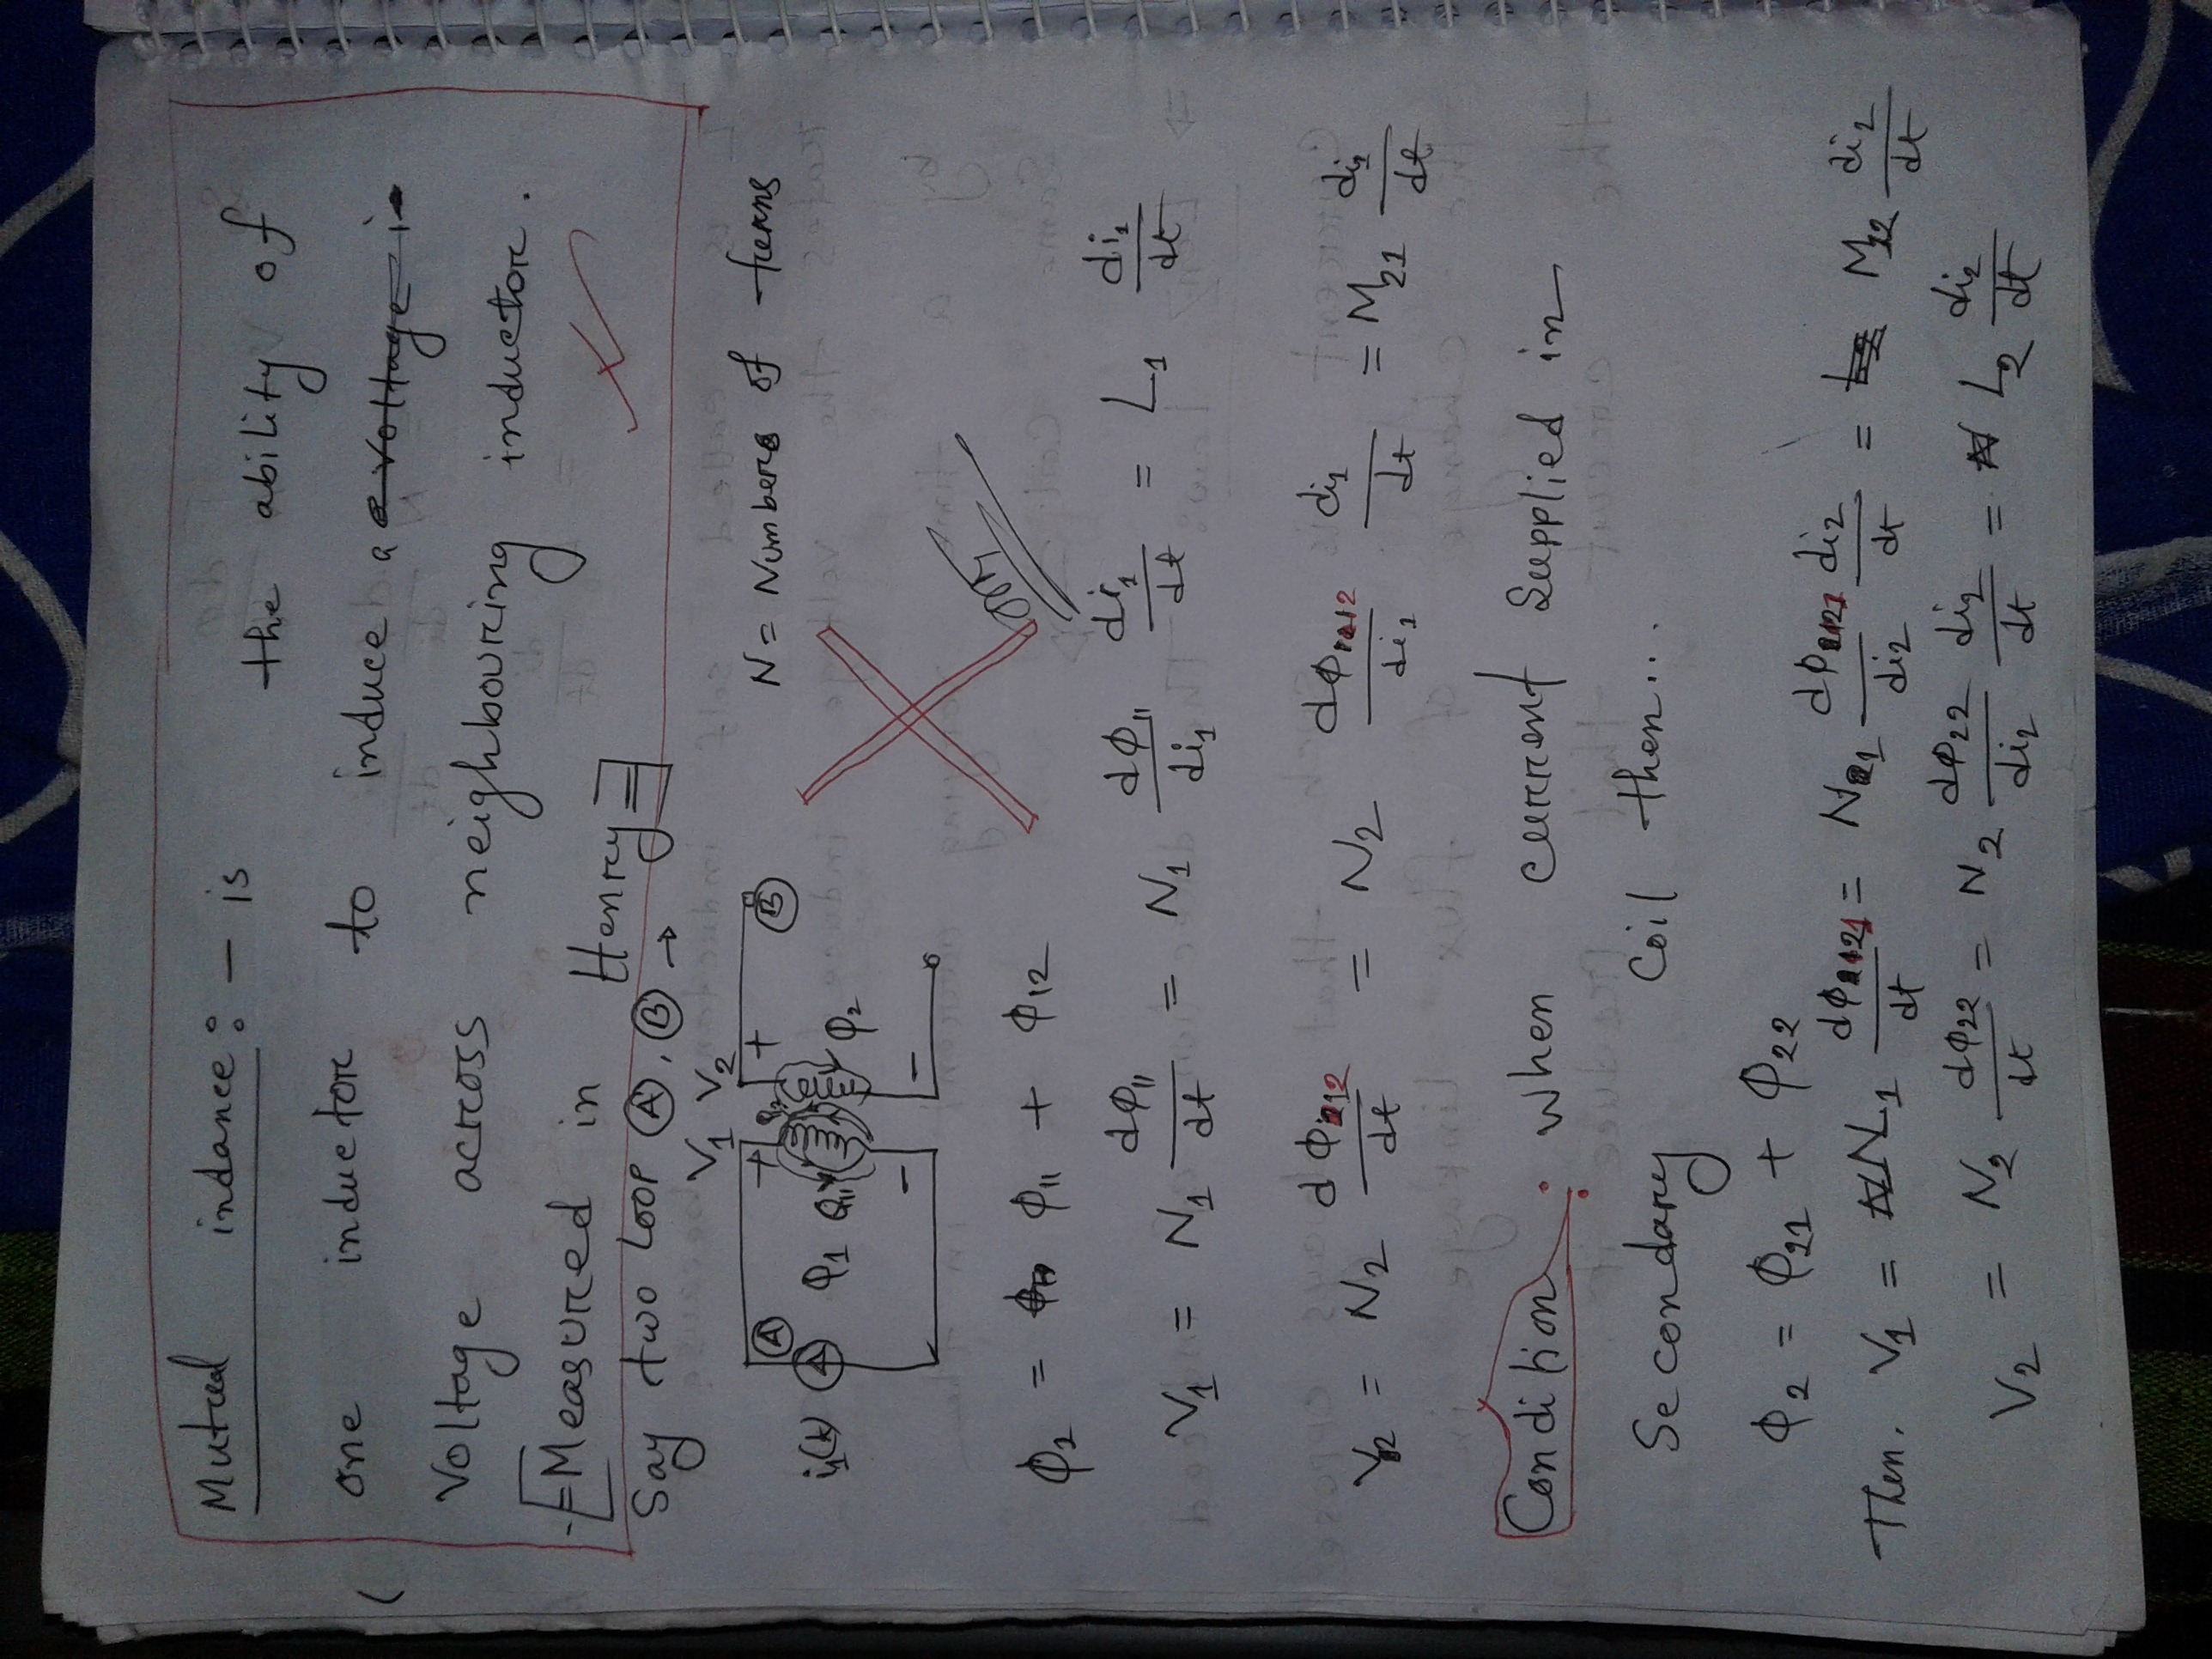 Mutual indance : - is the ability of
one inductor to induce a a voltage i
Voltage across neighbouring inductor.
[Measured in Henry]
Say two Loop A, B →
V1 V2
+ +
A B
i1(t) φ1 φ11 φ2
- -
N = Numbers of turns
φ2 = φ11 + φ12
V1 = N1 dφ11/dt = N1 dφ11/di1 di1/dt = L1 di1/dt
V2 = N2 dφ12/dt = N2 dφ12/di1 di1/dt = M21 di1/dt
Condition : When current Supplied in
Secondary Coil then...
φ2 = φ21 + φ22
Then. V1 = N1 dφ21/dt = N1 dφ21/di2 di2/dt = M12 di2/dt
V2 = N2 dφ22/dt = N2 dφ22/di2 di2/dt = L2 di2/dt